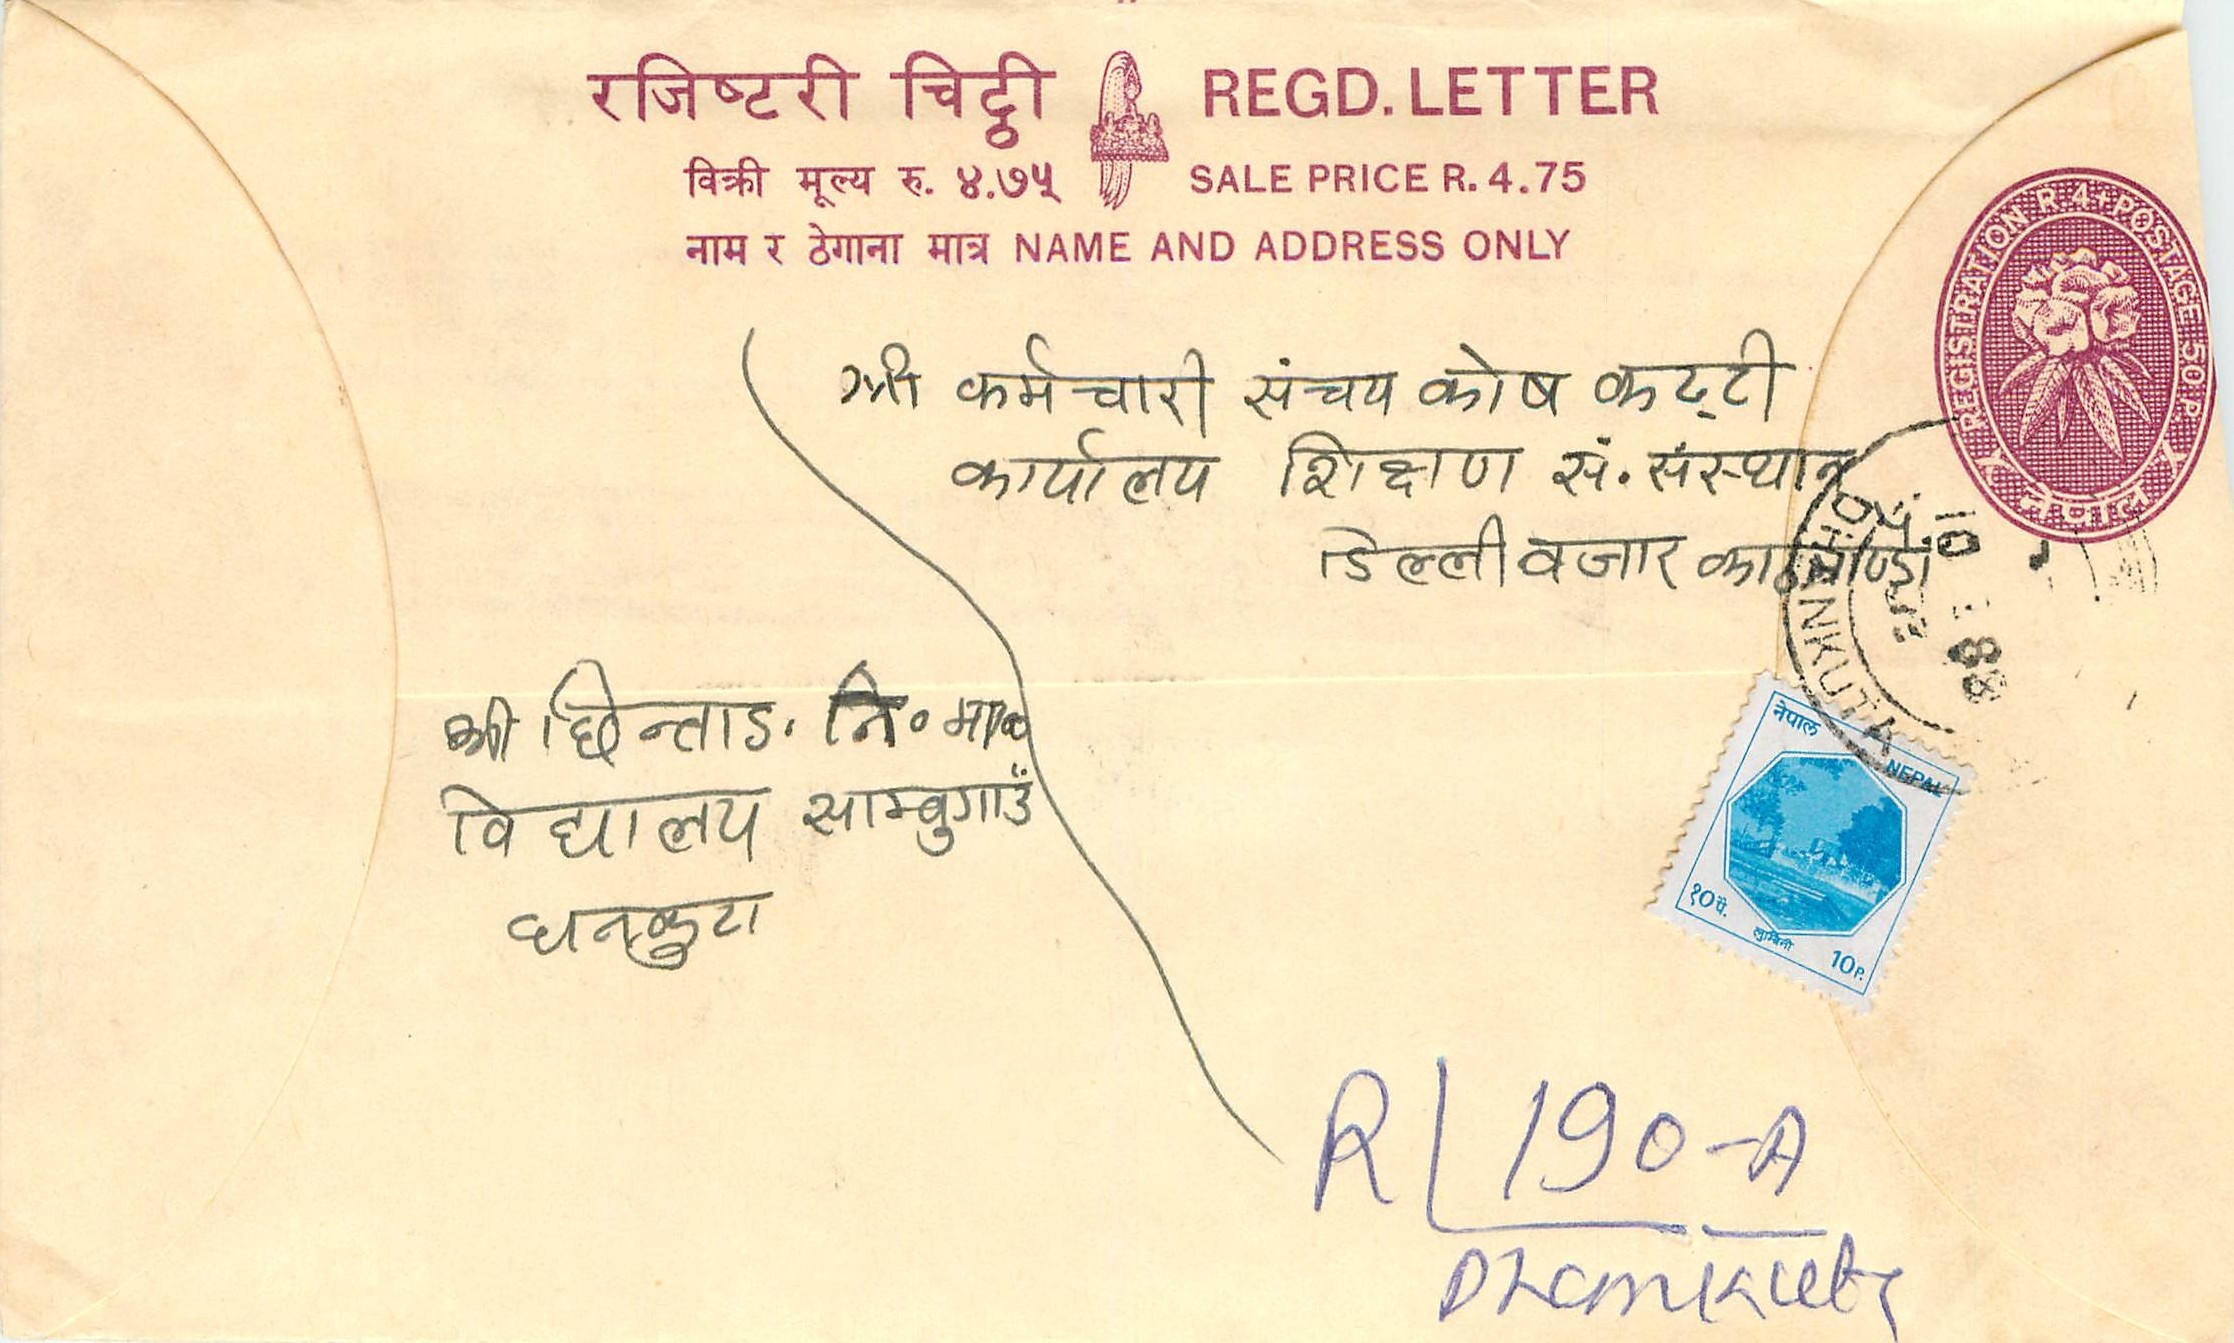 रजिष्टरी चिट्ठी REGD. LETTER
विक्री मूल्य रु. ४.७५ SALE PRICE R. 4.75
नाम र ठेगाना मात्र NAME AND ADDRESS ONLY
REGISTRATION R.4+POSTAGE 50 P.
नेपाल
श्री कर्मचारी संचय कोष कट्टी
कार्यालय शिक्षण सं. संस्थान
डिल्लीवजार काठमाण्डौ
DHANKUTA
10 88
श्री छिन्ताङ. नि० मा०
विद्यालय साम्बुगाउँ
धनकुटा
नेपाल NEPAL
१०पै. लुम्बिनी 10P.
R 190-A
Dhankuta